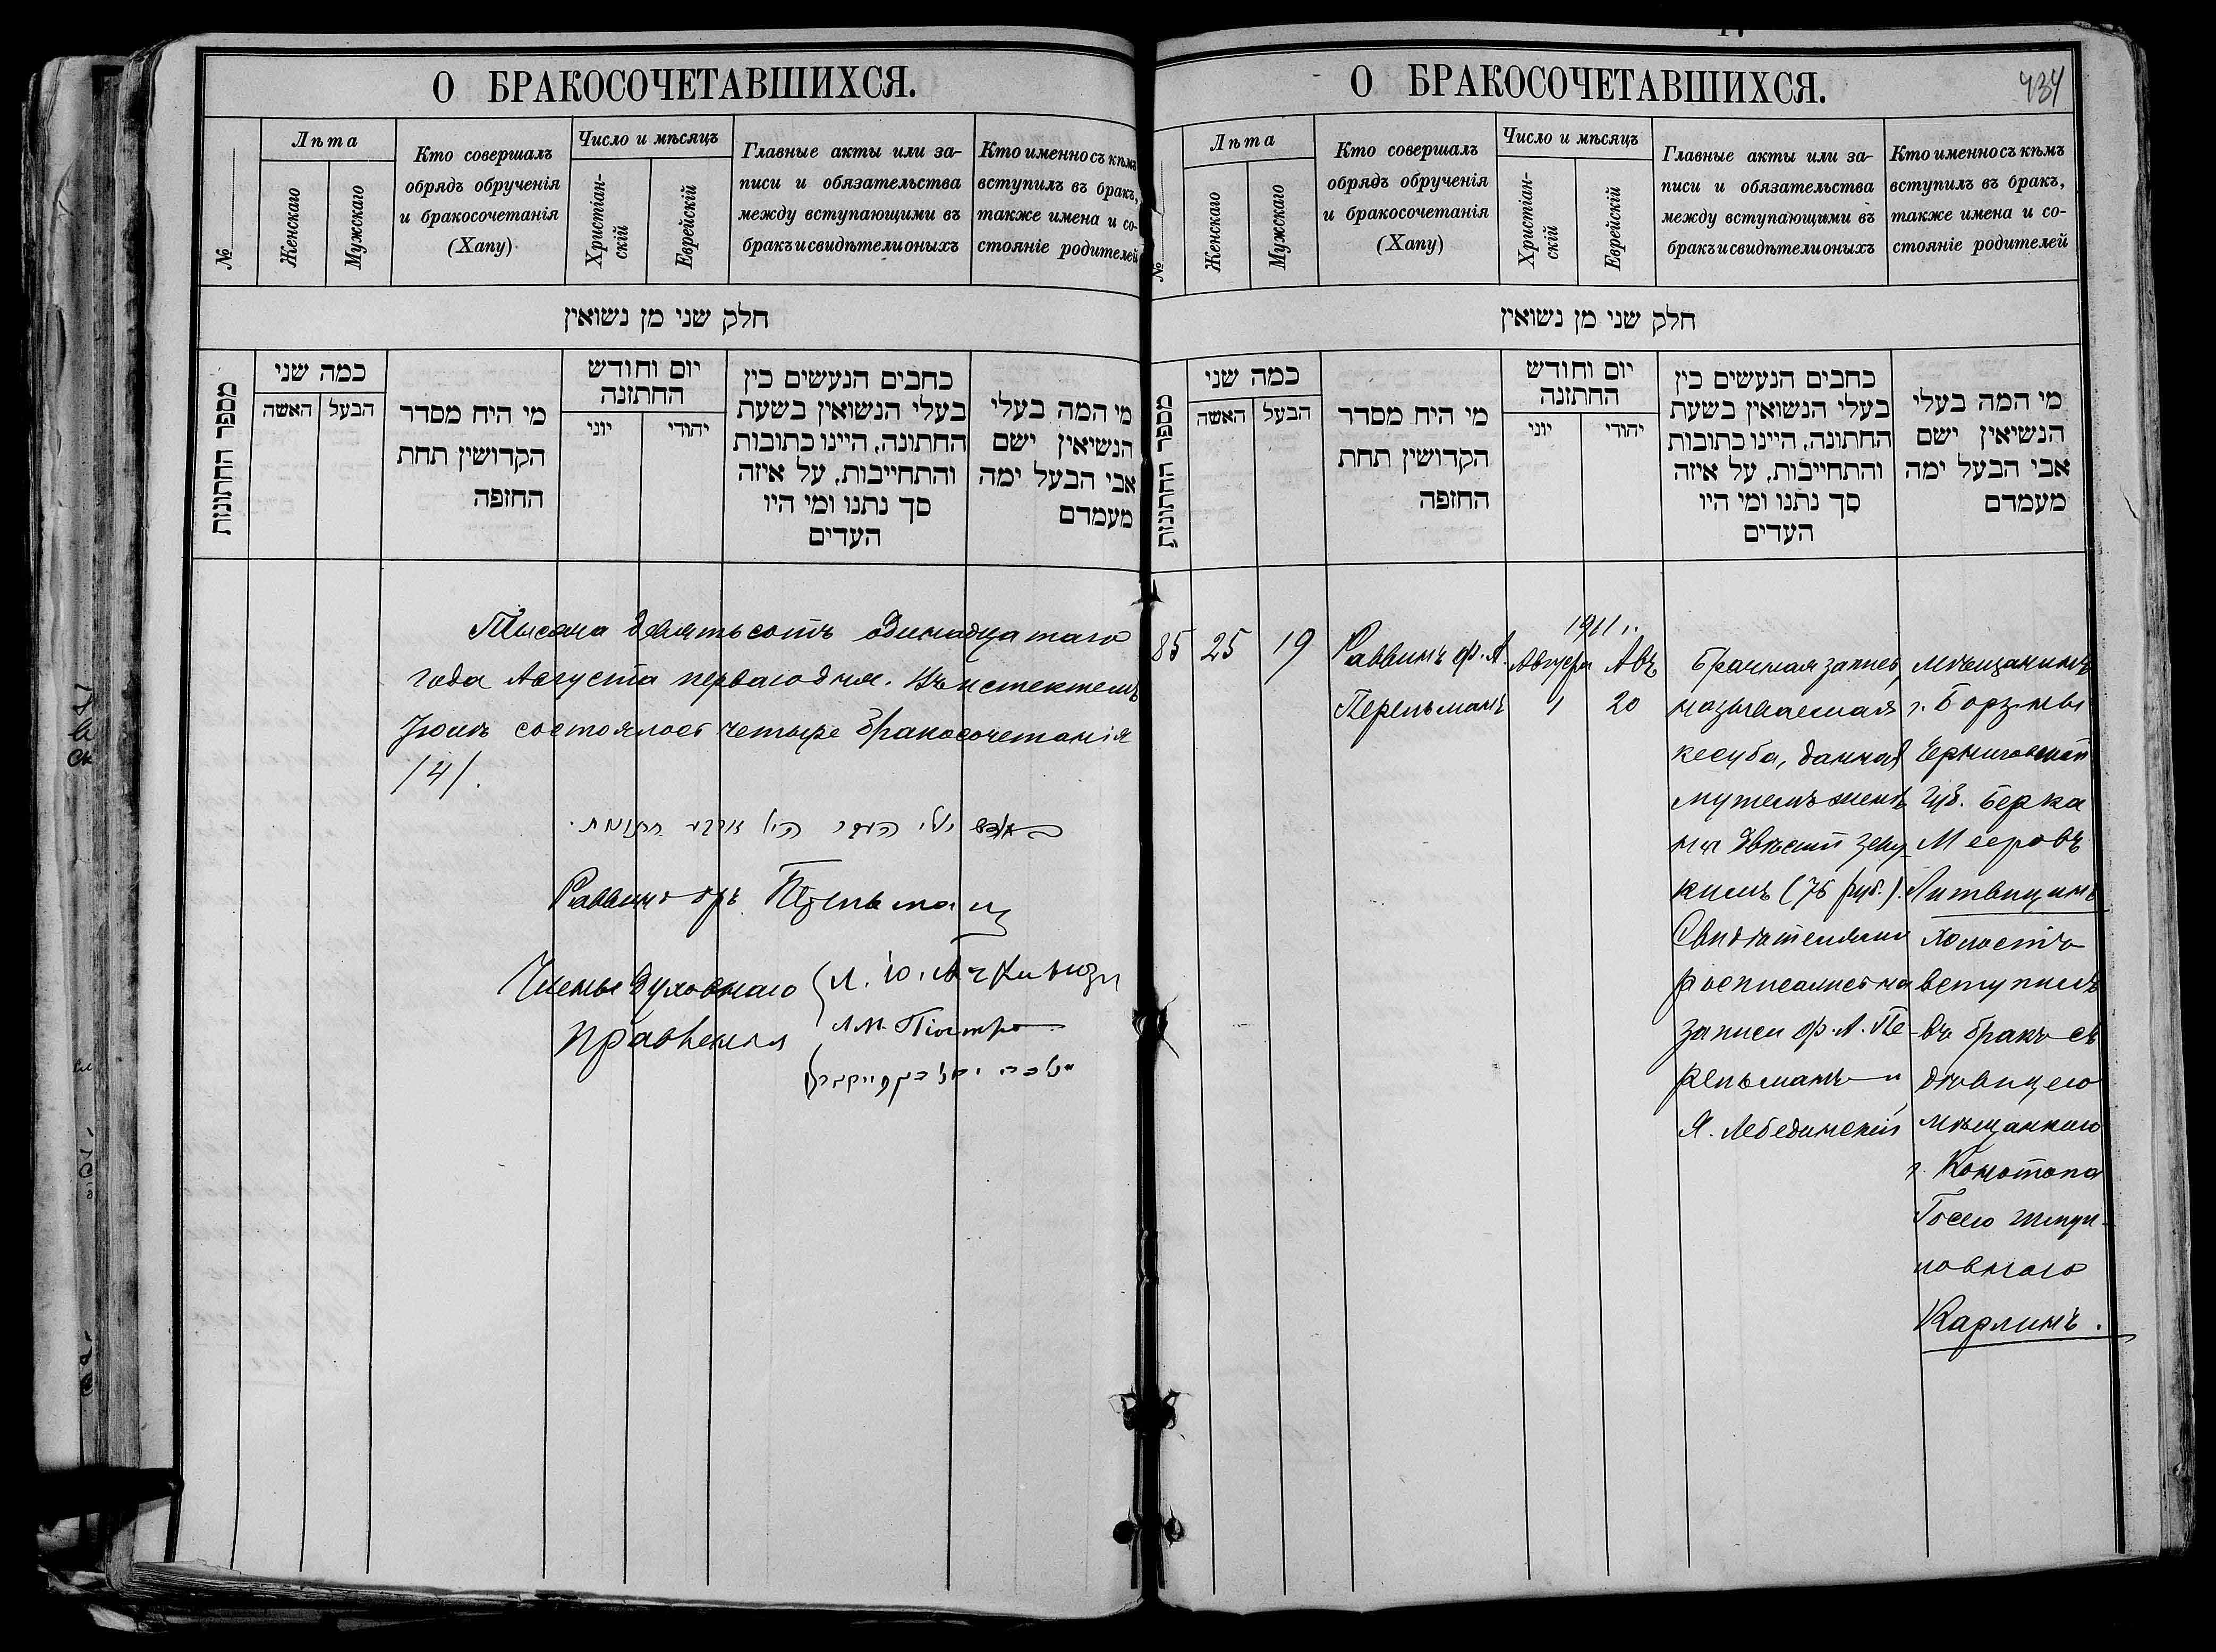 О БРАКОСОЧЕТАВШИХСЯ.
№
Лѣта
Женскаго
Мужскаго
Кто совершалъ
обрядъ обрученія
и бракосочетанія
(Хапу)
Число и мѣсяцъ
Христіан-
скій
Еврейскій
Главные акты или за-
писи и обязательства
между вступающими въ
бракъ и свидѣтели оныхъ
Кто именно съ кѣмъ
вступилъ въ бракъ,
также имена и со-
стояніе родителей
חלק שני מן נשואין
מספר החתונות
כמה שני
האשה
הבעל
מי היח מסדר
הקדושין תחת
החזפה
יום וחודש
החתזנה
יוני
יהודי
כחבים הנעשים כין
בעלי הנשואין בשעת
החתונה, היינו כתובות
והתחייבות, על איזה
סך נתנו ומי היו
העדים
מי המה בעלי
הנשיאין ישם
אבי הבעל ימה
מעמדם
Тысяча девятьсотъ одинадцатаго
года Августа перваго дня. Въ истекшемъ
Іюлѣ состоялось четыре бракосочетанія
/4/.
Раввинъ
Члены духовнаго
правленія
О БРАКОСОЧЕТАВШИХСЯ.
434
№
Лѣта
Женскаго
Мужскаго
Кто совершалъ
обрядъ обрученія
и бракосочетанія
(Хапу)
Число и мѣсяцъ
Христіан-
скій
Еврейскій
Главные акты или за-
писи и обязательства
между вступающими въ
бракъ и свидѣтели оныхъ
Кто именно съ кѣмъ
вступилъ въ бракъ,
также имена и со-
стояніе родителей
חלק שני מן נשואין
מספר החתונות
כמה שני
האשה
הבעל
מי היח מסדר
הקדושין תחת
החזפה
יום וחודש
החתזנה
יוני
יהודי
כחבים הנעשים כין
בעלי הנשואין בשעת
החתונה, היינו כתובות
והתחייבות, על איזה
סך נתנו ומי היו
העדים
מי המה בעלי
הנשיאין ישם
אבי הבעל ימה
מעמדם
85
25
19
Раввинъ Ф. А.
Перельманъ
1911 г.
Августа
1
Авъ
20
Брачная запись,
называемая
кесуба, данная
мужемъ женѣ
на двѣсти зеку
кимъ (75 руб.).
Свидѣтелями
росписались на
записи Ф. А. Пе-
рельманъ и
Я. Лебединскій
Мѣщанинъ
г. Борзны
Черниговской
губ. Берка
Мееровъ
Литвинъ
холостъ
вступилъ
въ бракъ съ
дѣвицею
мѣщанкою
г. Конотопа
Госею
Карлинъ.